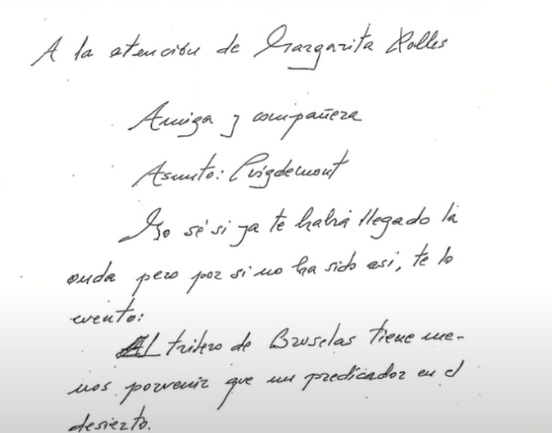 A la atención de Margarita Rolles
Amiga y compañera
Asunto: Puigdemont
No sé si ya te habrá llegado la
onda pero por si no ha sido así, te lo
cuento:
Al trilero de Bruselas tiene me-
nos porvenir que un predicador en el
desierto.